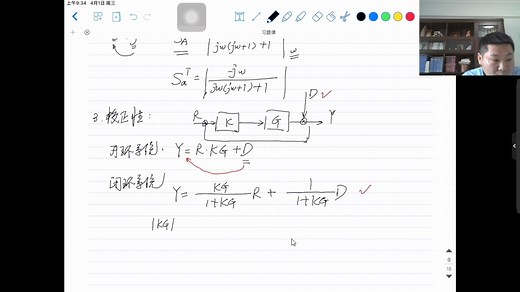 上午9:34 4月1日周三
习题课
-A
|jw(jw+1)+1| w
S_a^T = |-jw / jw(jw+1)+1|
3. 校正性:
R K G D ✓ Y
开环系统. Y = R·KG + D
闭环系统 Y = KG/1+KG R + 1/1+KG D ✓
|KG|
8
15